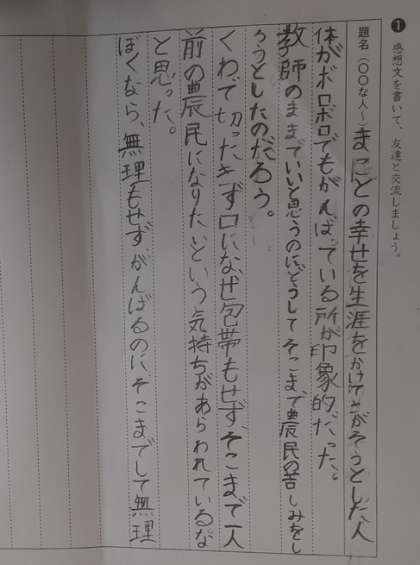 ❶ 感想文を書いて、友達と交流しましょう。
題名（○○な人～）まことの幸せを生涯をかけてさがそうとした人
体がボロボロでもがんばっている所が印象的だった。
教師のままでいいと思うのにどうしてそこまで農民の苦しみをし
ろうとしたのだろう。
くわで切ったきず口になぜ包帯もせず、そこまで一人
前の農民になりたいという気持ちがあらわれているな
と思った。
ぼくなら、無理もせずがんばるのに、そこまでして無理